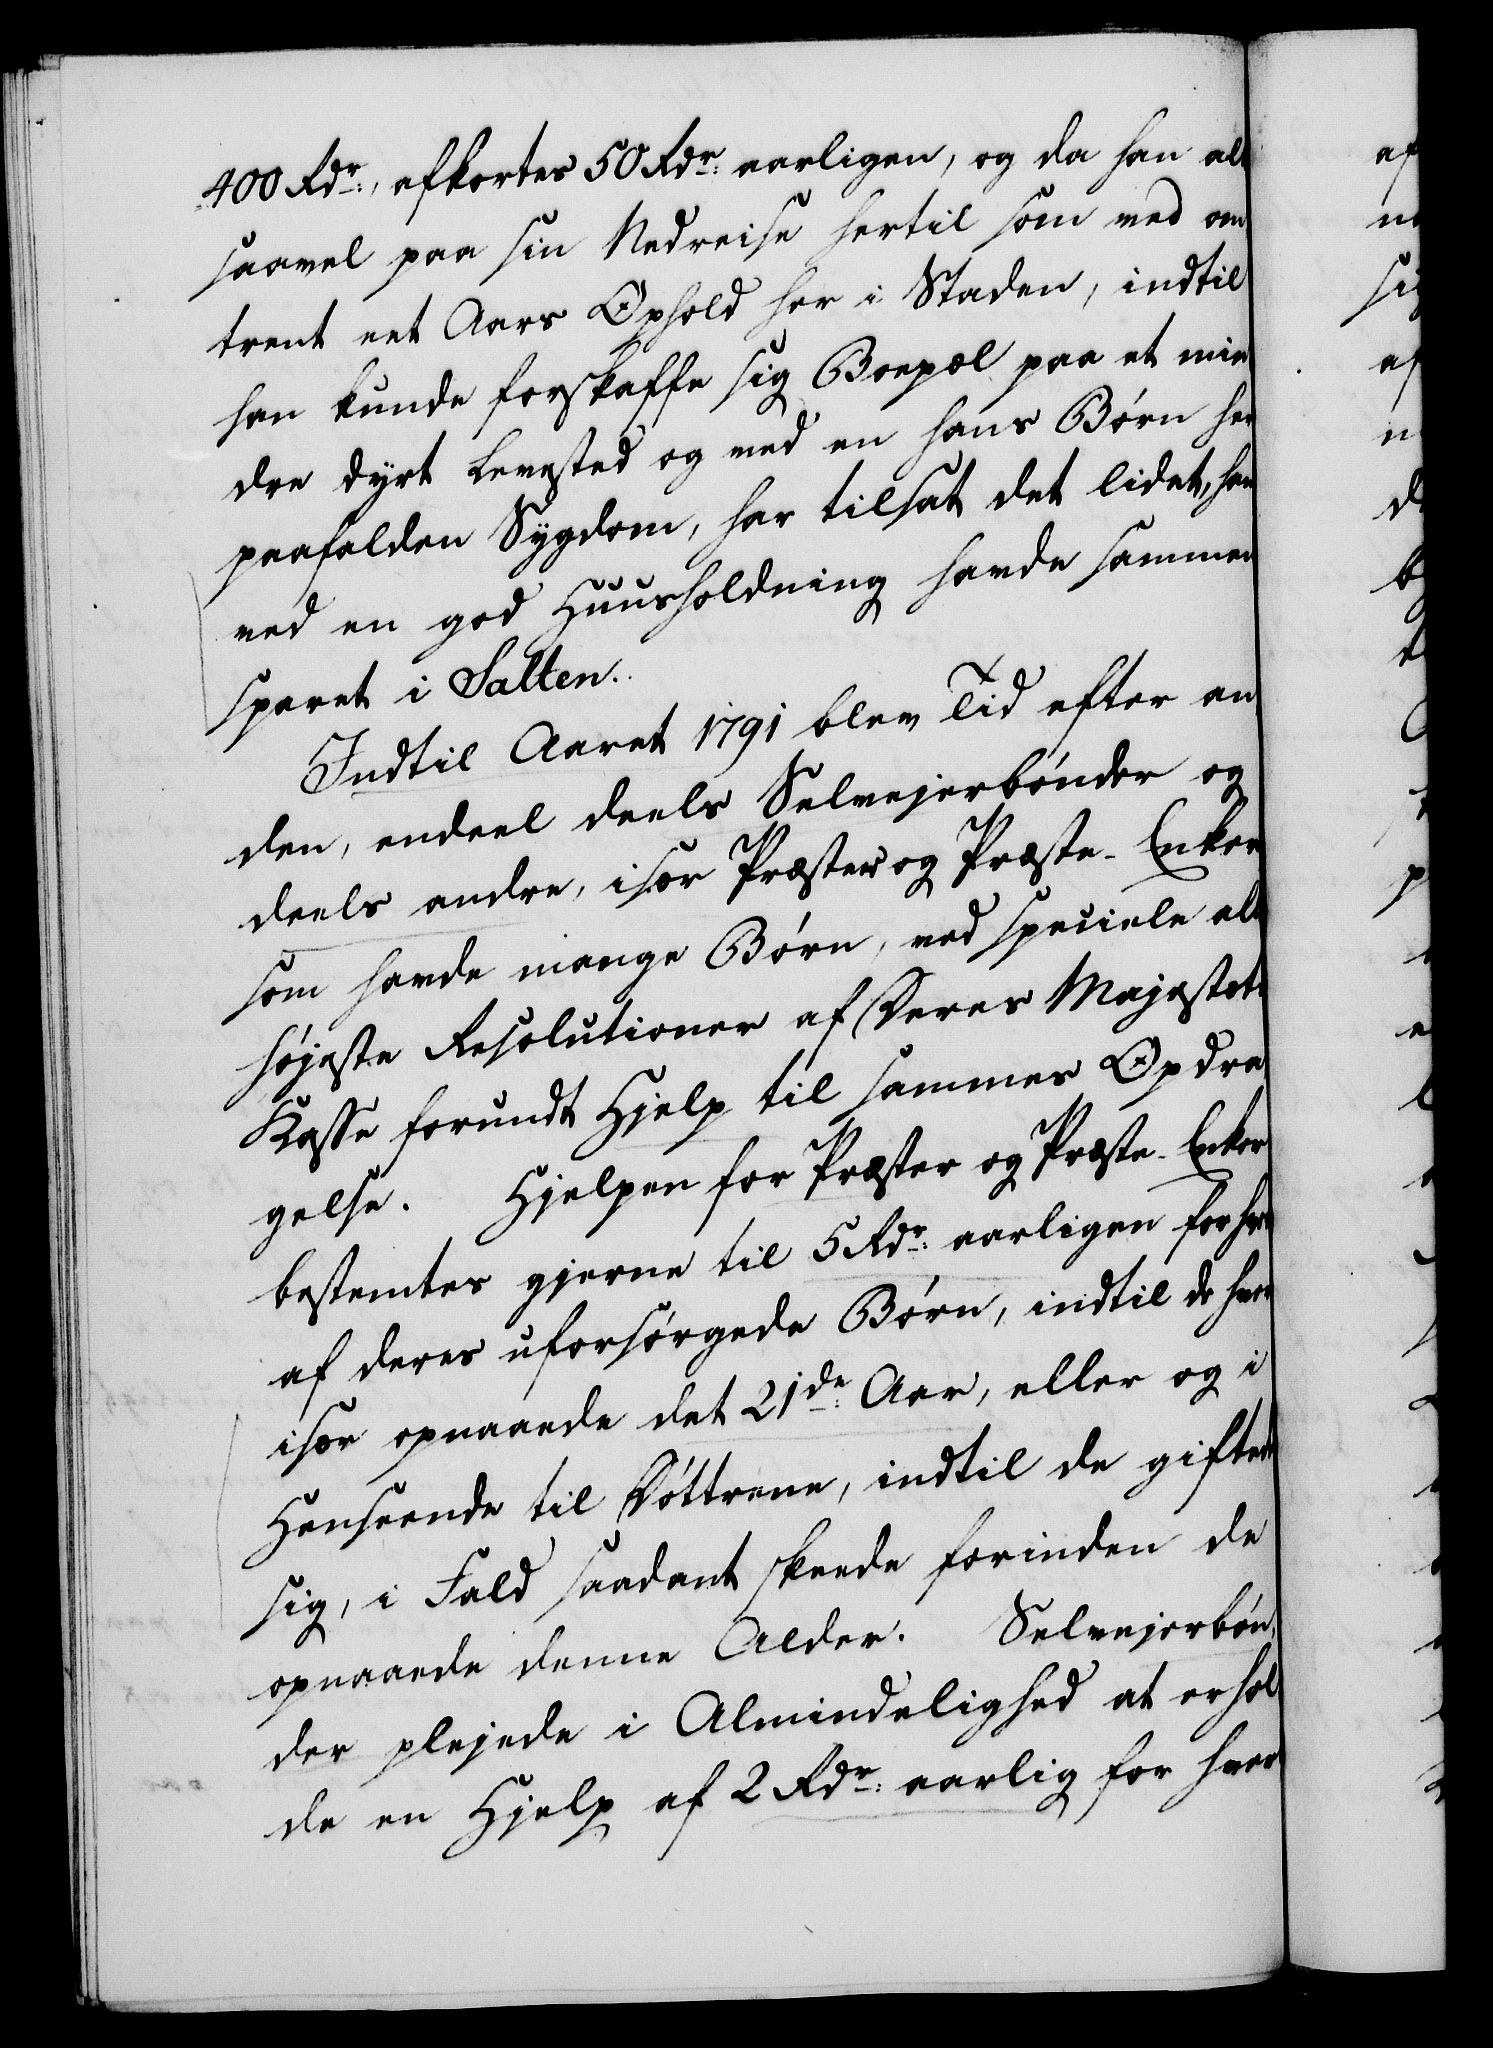 400 Rdr:, afkortes 50 Rdr: aarligen, og da han alt
saavel paa sin Nedreise hertil som ved om
trent eet Aars Ophold her i Staden, indtil
han kunde forskaffe sig Boepæl paa et min
dre dyrt Levested og ved en hans Børn her
paafalden Sygdom, har tilsat det lidet, han
ved en god Huusholdning havde sammen
sparet i Salten.
Indtil Aaret 1791 blev Tid efter an
den, endeel deels Selvejerbønder og
deels andre, især Præster og Præste-Enker
som havde mange Børn, ved speciele al
højeste Resolutioner af Deres Majestæts
Kasse forundt Hjelp til sammes Opdra
gelse. Hjelpen for Præster og Præste-Enker
bestemtes gjerne til 5 Rdr: aarligen for hvert
af deres uforsørgede Børn, indtil de hver
især opnaaede det 21de: Aar, eller og i
Henseende til Døttrene, indtil de giftede
sig, i Fald saadant skeede forinden de
opnaaede denne Alder. Selvejerbøn
der plejede i Almindelighed at erhol
de en Hjelp af 2 Rdr: aarlig for hver